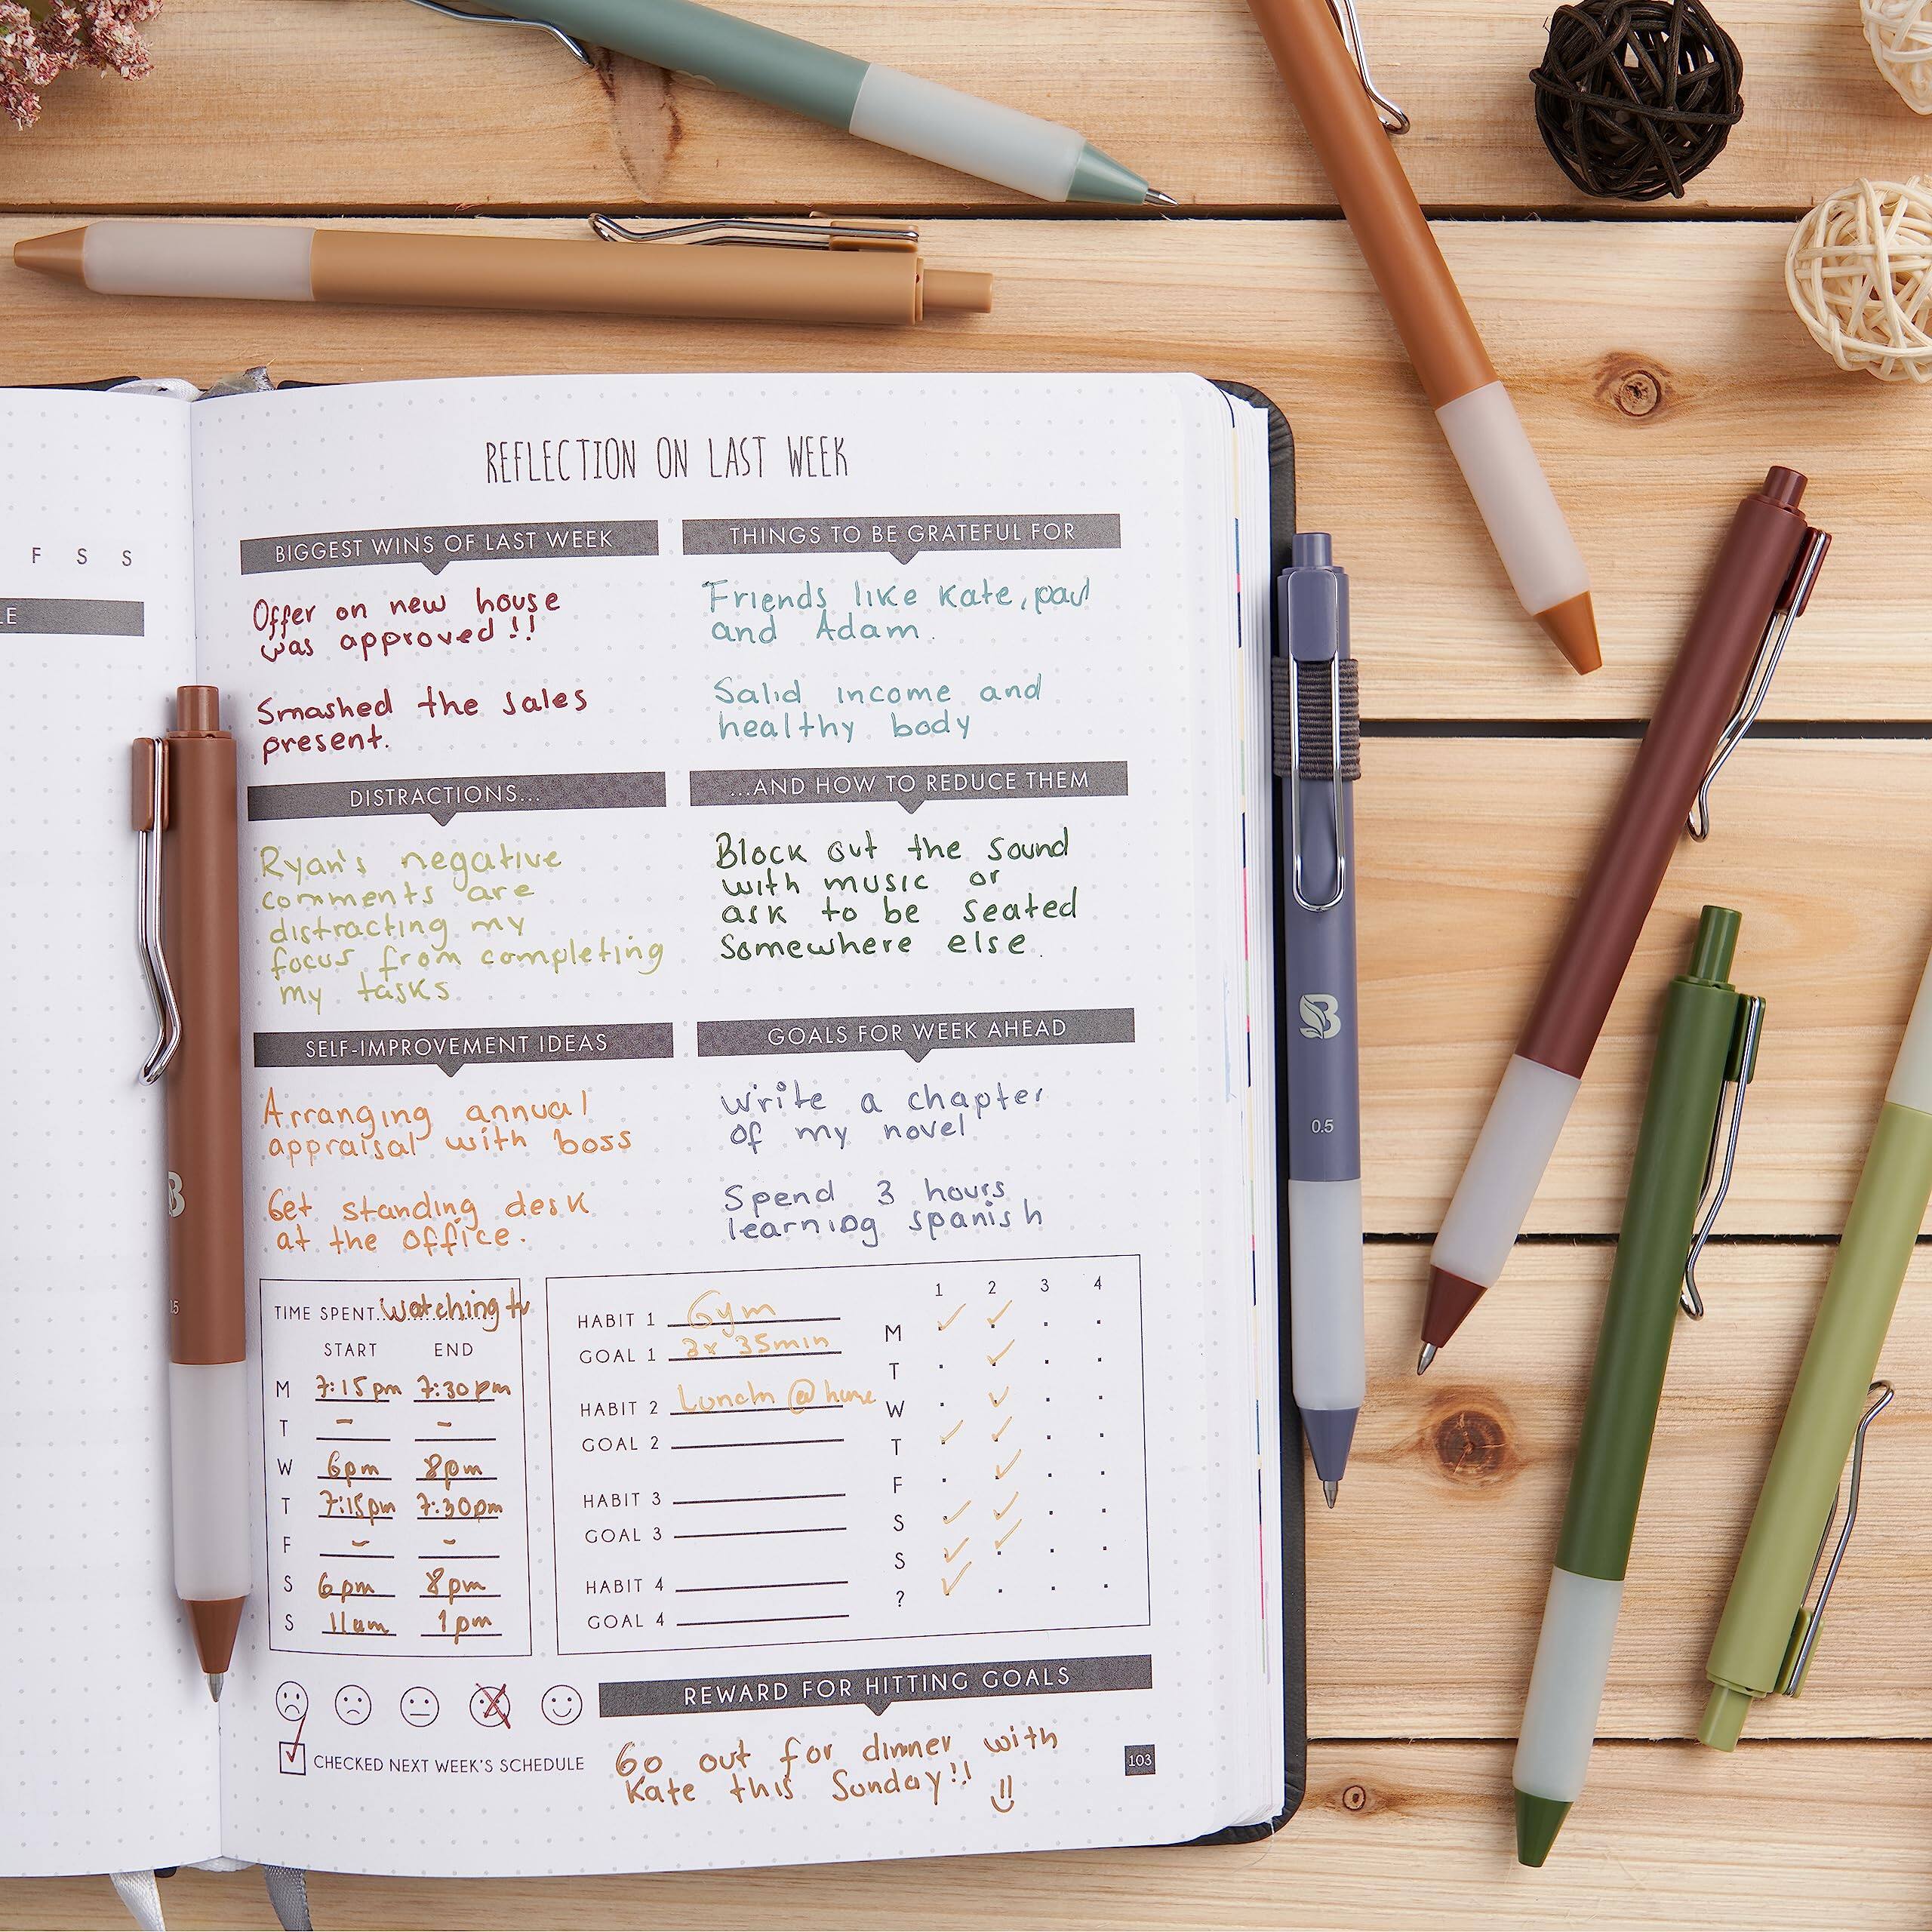 F S S
LE
REFLECTION ON LAST WEEK
BIGGEST WINS OF LAST WEEK
Offer on new house
was approved!!
Smashed the sales
present.
THINGS TO BE GRATEFUL FOR
Friends like Kate, paul
and Adam.
Salid income and
healthy body
DISTRACTIONS...
Ryan's negative
comments are
distracting my
focus from completing
my tasks
...AND HOW TO REDUCE THEM
Block out the sound
with music or
ask to be seated
somewhere else.
SELF-IMPROVEMENT IDEAS
Arranging annual
appraisal with boss
Get standing desk
at the office.
GOALS FOR WEEK AHEAD
Write a chapter
of my novel
Spend 3 hours
learning spanish
TIME SPENT...watching tv
START END
M 7:15pm 7:30pm
T - -
W 6pm 8pm
T 7:15pm 7:30pm
F - -
S 6pm 8pm
S 11am 1pm
HABIT 1 Gym
GOAL 1 3x 35min
HABIT 2 Lunch @ home
GOAL 2
HABIT 3
GOAL 3
HABIT 4
GOAL 4
1 2 3 4
M ✓ ✓ . .
T . ✓ . .
W . ✓ . .
T ✓ ✓ . .
F . ✓ . .
S ✓ ✓ . .
S ✓ ✓ . .
? ✓ . . .
✓ CHECKED NEXT WEEK'S SCHEDULE
REWARD FOR HITTING GOALS
Go out for dinner with
Kate this Sunday!!
103
B
0.5
B